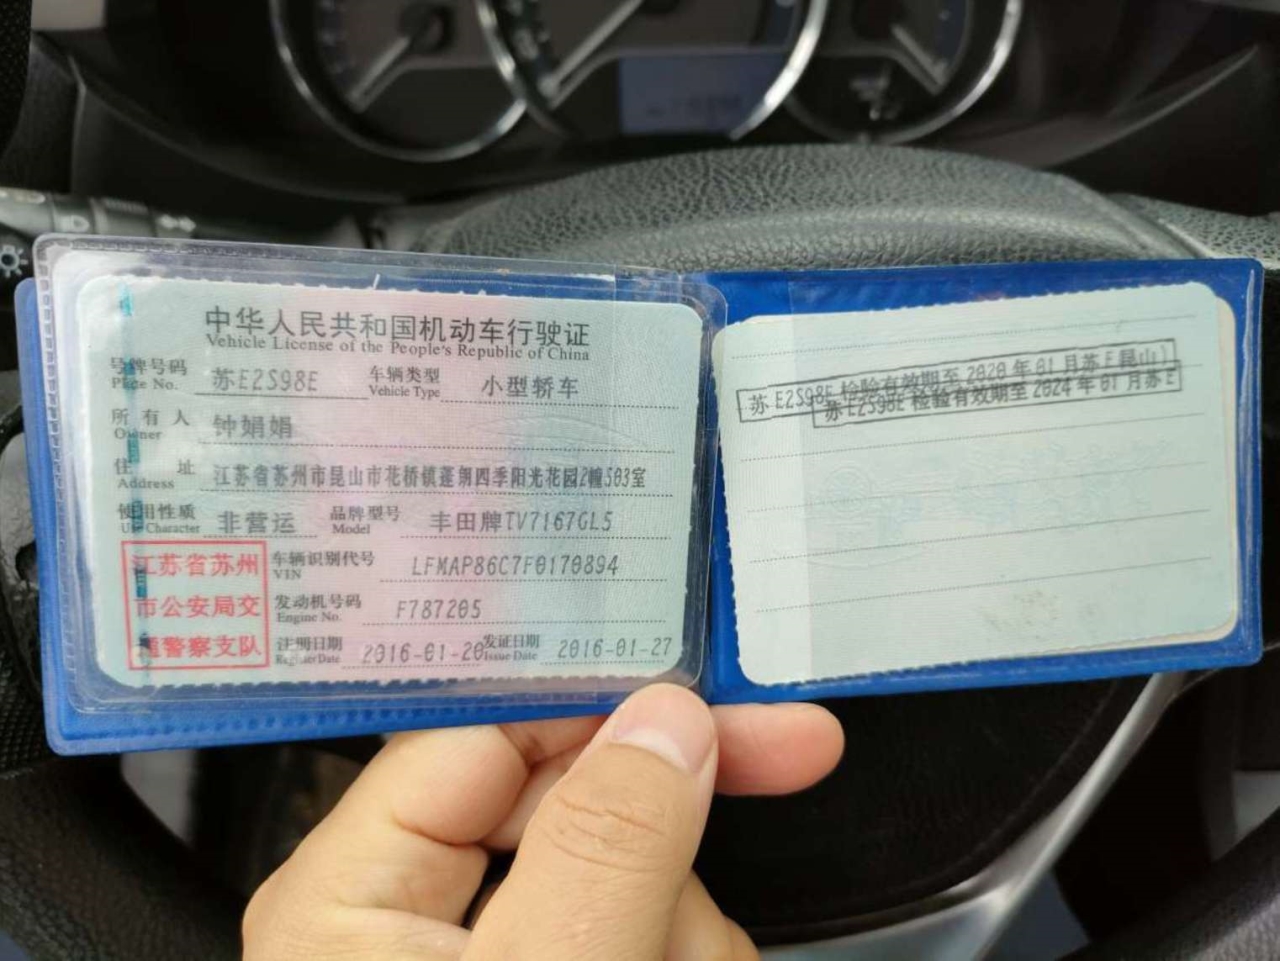 中华人民共和国机动车行驶证
Vehicle License of the People's Republic of China
号牌号码 苏E2S98E 车辆类型 小型轿车
Plate No. Vehicle Type
所有人 钟娟娟
Owner
住址 江苏省苏州市昆山市花桥镇蓬朗四季阳光花园2幢503室
Address
使用性质 非营运 品牌型号 丰田牌TV7167GL5
Use Character Model
江苏省苏州 车辆识别代号 LFMAP86C7F0170894
VIN
市公安局交 发动机号码 F787205
Engine No.
通警察支队 注册日期 2016-01-20 发证日期 2016-01-27
Register Date Issue Date
苏E2S98E 检验有效期至 2020 年 01 月苏E(昆山)
苏E2S98E 检验有效期至 2024 年 01 月苏E